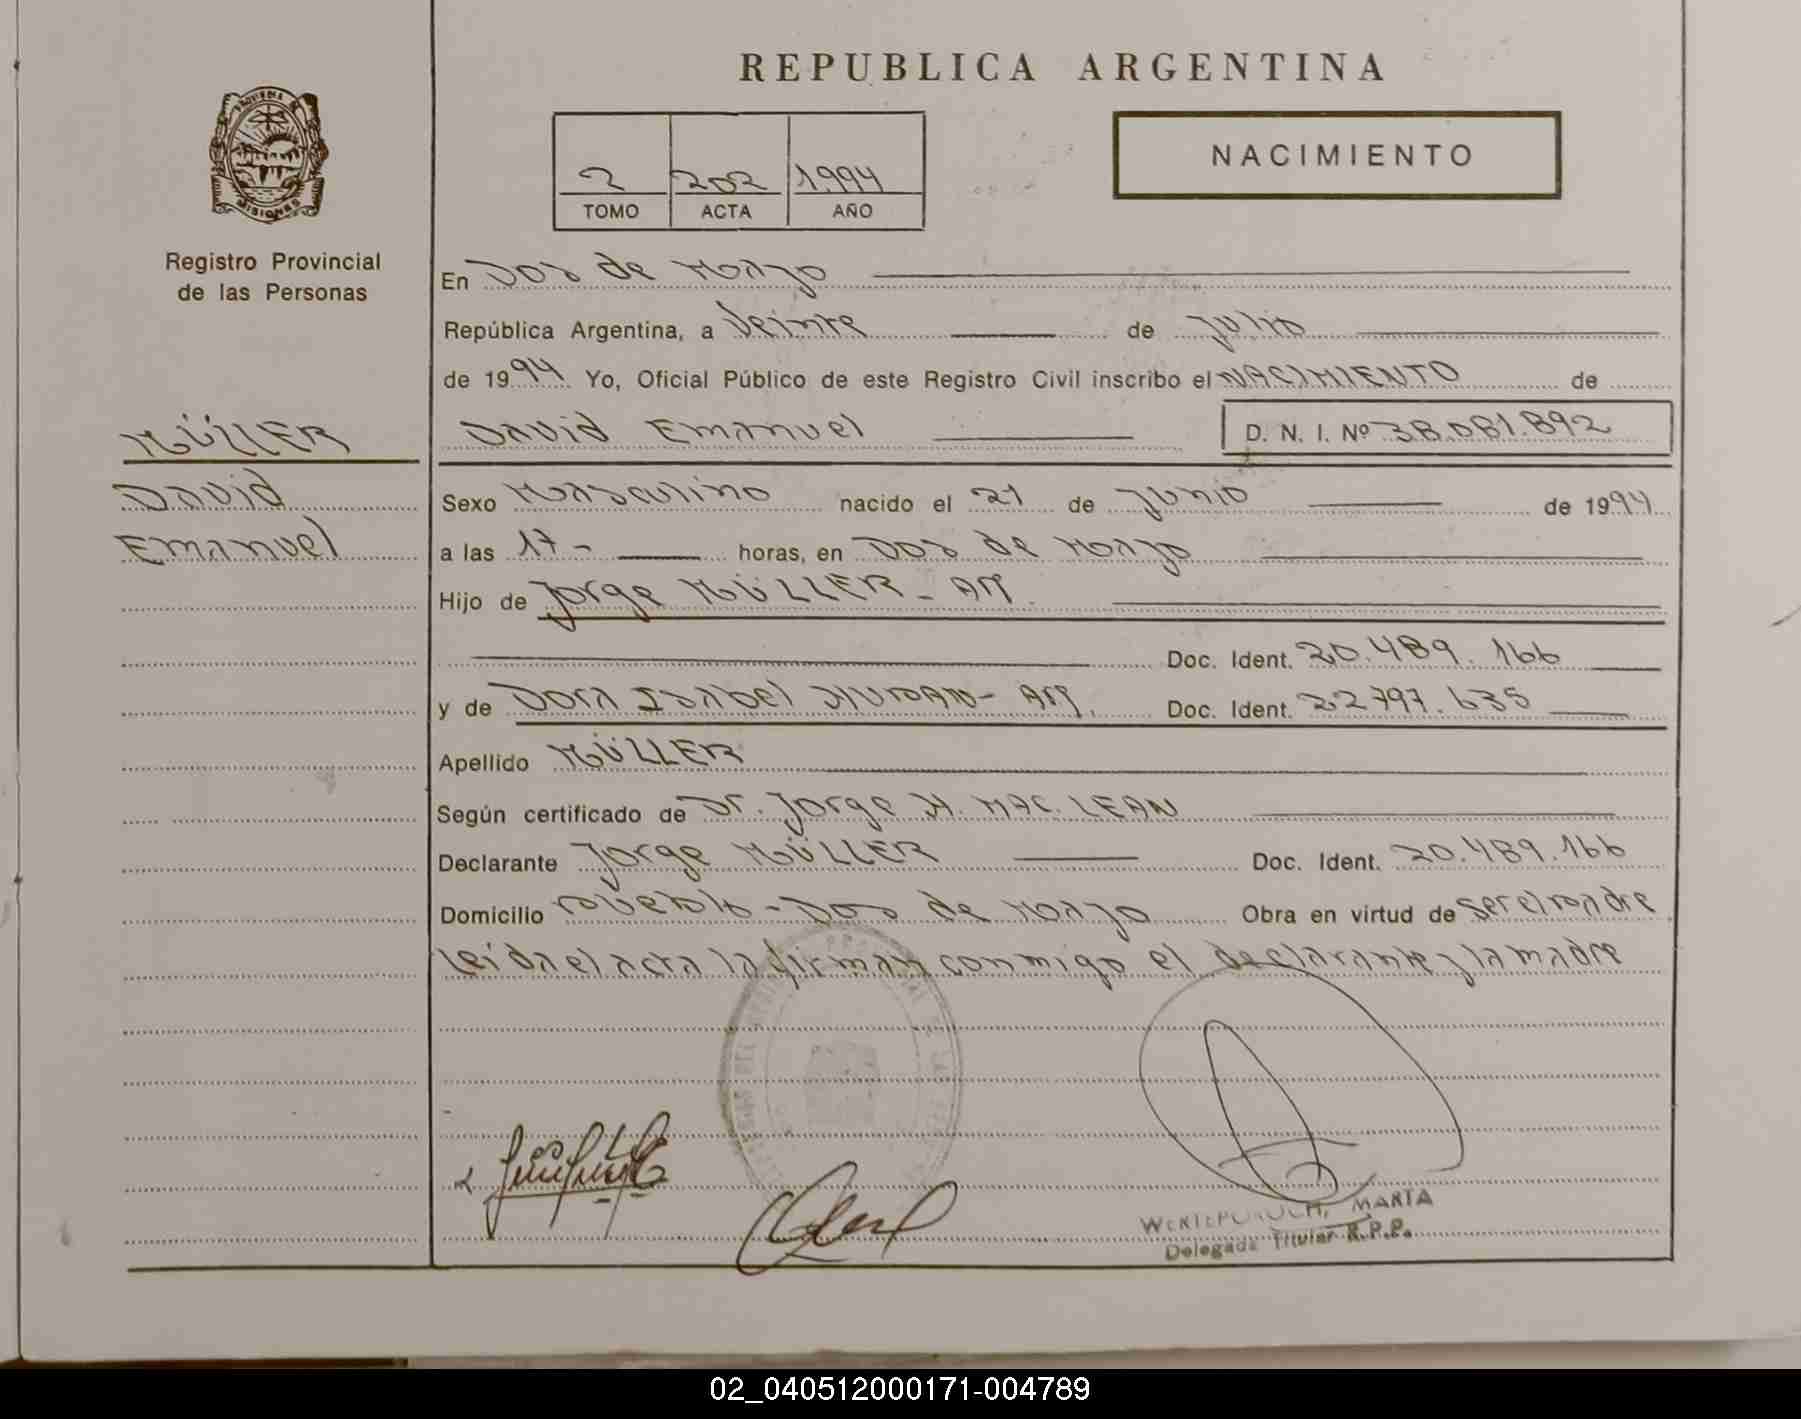 REPUBLICA ARGENTINA
PROVINCIA DE
MISIONES
Registro Provincial
de las Personas
2 202 1994
TOMO ACTA AÑO
NACIMIENTO
En Dos de Mayo
República Argentina, a Veinte de Julio
de 1994 Yo, Oficial Público de este Registro Civil inscribo el NACIMIENTO de
MÜLLER
David Emanuel D. N. I. Nº 38.081.892
David
Emanuel
Sexo Masculino nacido el 21 de Junio de 1994
a las 17- horas, en Dos de Mayo
Hijo de Jorge MÜLLER - Arg.
Doc. Ident. 20.489.166
y de Dora Isabel - Arg. Doc. Ident. 22797.635
Apellido MÜLLER
Según certificado de Dr. Jorge H. MAC. LEAN
Declarante Jorge MÜLLER Doc. Ident. 20.489.166
Domicilio Pueblo - Dos de Mayo Obra en virtud de ser el padre
Leída el acta la firman conmigo el declarante y la madre
MARTA
Delegada Titular R.P.P.
02_040512000171-004789